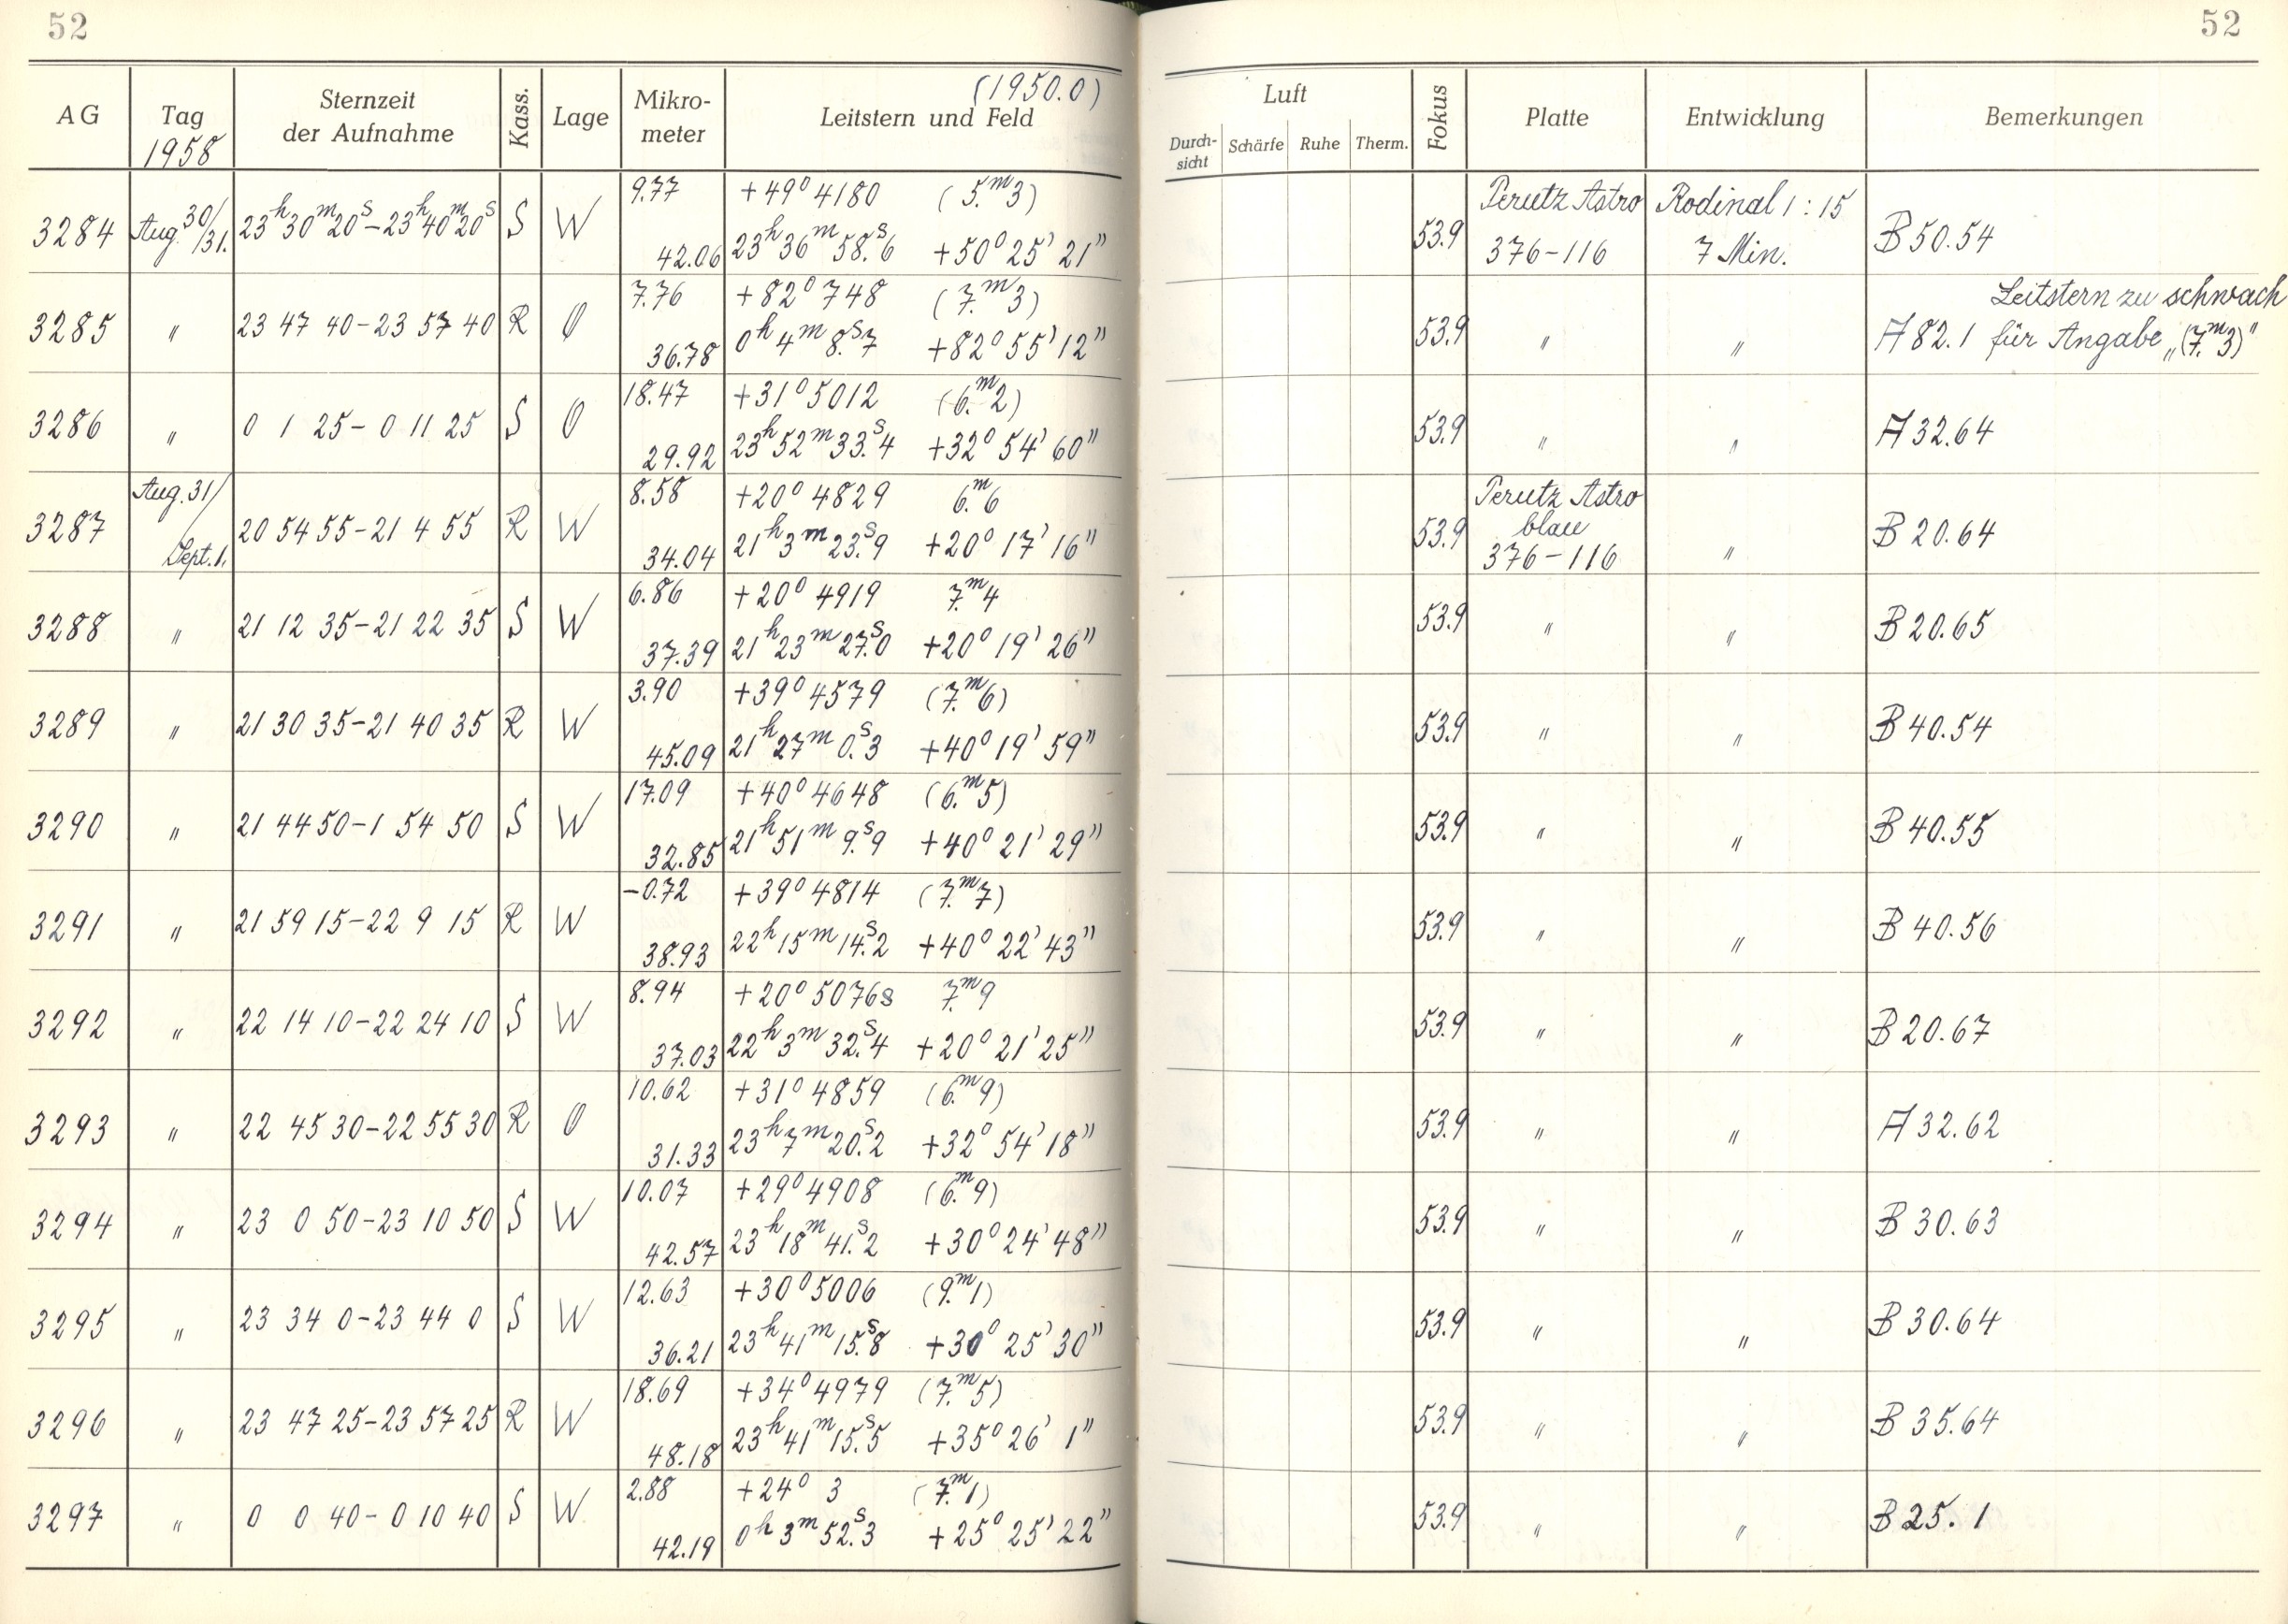 52
52
(1950.0)
AG Tag 1958 Sternzeit der Aufnahme Kass. Lage Mikro-meter Leitstern und Feld Luft Durch-sicht Schärfe Ruhe Therm. Fokus Platte Entwicklung Bemerkungen
9.77 +49° 4180 (5.ᵐ3) Perutz Astro Rodinal 1:15
3284 Aug. 30/31. 23ʰ30ᵐ20ˢ–23ʰ40ᵐ20ˢ S W 53.9 B 50.54
42.06 23ʰ 36ᵐ 58.ˢ6 +50° 25' 21" 376–116 7 Min.
7.76 +82° 748 (7.ᵐ3) Leitstern zu schwach
3285 " 23 47 40–23 57 40 R O 53.9 " " A 82.1 für Angabe „(7.ᵐ3)"
36.78 0ʰ 4ᵐ 8.ˢ7 +82° 55' 12"
18.47 +31° 5012 (6.ᵐ2)
3286 " 0 1 25– 0 11 25 S O 53.9 " " A 32.64
29.92 23ʰ 52ᵐ 33.ˢ4 +32° 54' 60"
Aug. 31/ 8.58 +20° 4829 6.ᵐ6 Perutz Astro
3287 20 54 55–21 4 55 R W 53.9 blau B 20.64
Sept. 1. 34.04 21ʰ 3ᵐ 23.ˢ9 +20° 17' 16" 376–116 "
6.86 +20° 4919 7.ᵐ4
3288 " 21 12 35–21 22 35 S W 53.9 " " B 20.65
37.39 21ʰ 23ᵐ 27.ˢ0 +20° 19' 26"
3.90 +39° 4579 (7.ᵐ6)
3289 " 21 30 35–21 40 35 R W 53.9 " " B 40.54
45.09 21ʰ 27ᵐ 0.ˢ3 +40° 19' 59"
17.09 +40° 4648 (6.ᵐ5)
3290 " 21 44 50–1 54 50 S W 53.9 " " B 40.55
32.85 21ʰ 51ᵐ 9.ˢ9 +40° 21' 29"
–0.72 +39° 4814 (7.ᵐ7)
3291 " 21 59 15–22 9 15 R W 53.9 " " B 40.56
38.93 22ʰ 15ᵐ 14.ˢ2 +40° 22' 43"
8.94 +20° 5076s 7.ᵐ9
3292 " 22 14 10–22 24 10 S W 53.9 " " B 20.67
37.03 22ʰ 3ᵐ 32.ˢ4 +20° 21' 25"
10.62 +31° 4859 (6.ᵐ9)
3293 " 22 45 30–22 55 30 R O 53.9 " " A 32.62
31.33 23ʰ 7ᵐ 20.ˢ2 +32° 54' 18"
10.07 +29° 4908 (6.ᵐ9)
3294 " 23 0 50–23 10 50 S W 53.9 " " B 30.63
42.57 23ʰ 18ᵐ 41.ˢ2 +30° 24' 48"
12.63 +30° 5006 (9.ᵐ1)
3295 " 23 34 0–23 44 0 S W 53.9 " " B 30.64
36.21 23ʰ 41ᵐ 15.ˢ8 +30° 25' 30"
18.69 +34° 4979 (7.ᵐ5)
3296 " 23 47 25–23 57 25 R W 53.9 " " B 35.64
48.18 23ʰ 41ᵐ 15.ˢ5 +35° 26' 1"
2.88 +24° 3 (7.ᵐ1)
3297 " 0 0 40– 0 10 40 S W 53.9 " " B 25. 1
42.19 0ʰ 3ᵐ 52.ˢ3 +25° 25' 22"